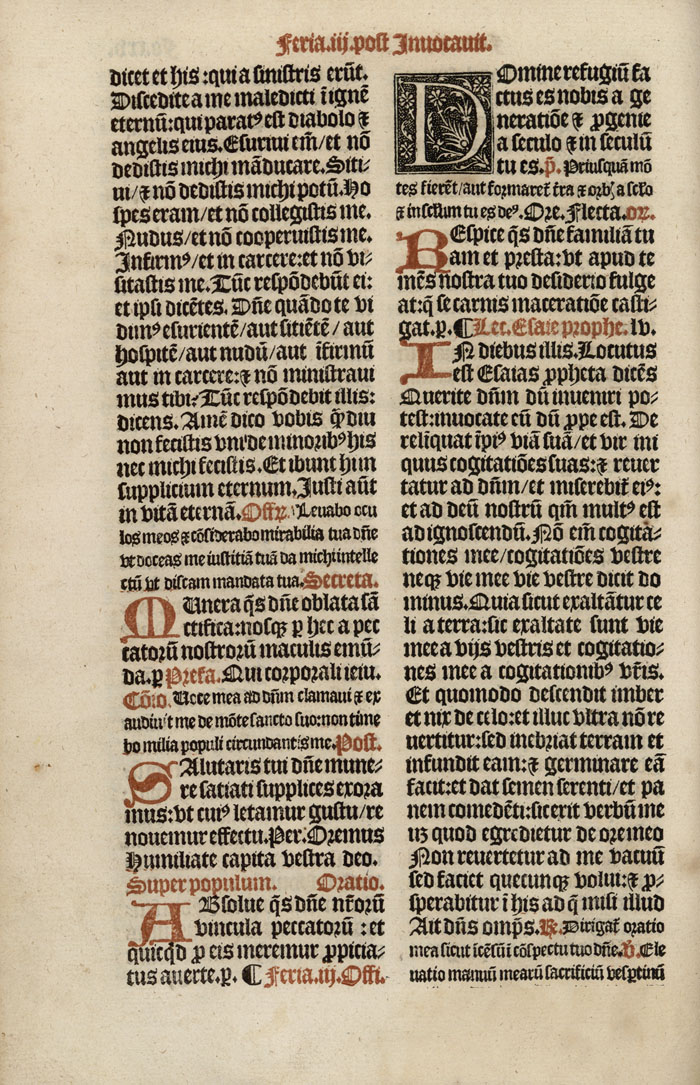 Feria.iij.post Inuocauit.
dicet et his:qui a sinistris erūt.
Discedite a me maledicti ī ignē
eternū:qui paratꝰ est diabolo ⁊
angelis eius. Esuriui em̄/et nō
dedistis michi māducare. Siti-
ui/⁊ nō dedistis michi potū. Ho
spes eram/et nō collegistis me.
Nudus/et nō cooperuistis me.
Infirmꝰ/et in carcere:et nō vi-
sitastis me. Tūc respōdebūt ei:
et ipsi dicētes. Dn̄e quādo te vi
dimꝰ esurientē/aut sitiētē/ aut
hospitē/aut nudū/aut īfirmū
aut in carcere:⁊ nō ministraui
mus tibi? Tūc respōdebit illis:
dicens. Amē dico vobis q̄ diu
non fecistis vni de minoribꝰ his
nec michi fecistis. Et ibunt hij in
supplicium eternum. Justi aūt
in vitā eternā. Offr. Leuabo ocu
los meos ⁊ cōsiderabo mirabilia tua dn̄e
vt doceas me iustitiā tuā da michi intelle
ctū vt discam mandata tua. Secreta.
MUnera q̄s dn̄e oblata sā
ctifica:nosqꝫ ꝑ hec a pec
catorū nostrorū maculis emū-
da. ꝑ Prefa. Qui corporali ieiu.
Cōio. Uoce mea ad dn̄m clamaui ⁊ ex
audiuit me de mōte sancto suo:non time
bo milia populi circundantis me. Post.
SAlutaris tui dn̄e mune-
re satiati supplices exora
mus:vt cuiꝰ letamur gustu/re
nouemur effectu. Per. Oremus
Humiliate capita vestra deo.
Super populum. Oratio.
ABsolue q̄s dn̄e nr̄orū
vincula peccatorū : et
quicqd ꝓ eis meremur ꝓpicia-
tus auerte. ꝑ. ¶ Feria.iij. Offi.
DOmine refugiū fa
ctus es nobis a ge
neratiōe ⁊ ꝓgenie
a seculo ⁊ in seculū
tu es. p̄. Priusquā mō
tes fierēt/aut formaret̄ t̄ra ⁊ orbꝭ a sclo
⁊ in scl̄um tu es deꝰ. Ore. Flecta. or.
REspice q̄s dn̄e familiā tu
am et presta:vt apud te
mēs nostra tuo desiderio fulge
at:q̄ se carnis maceratiōe casti-
gat. ꝑ. ¶ Lec. Esaie prophe. lv.
IN diebus illis. Locutus
est Esaias ꝓpheta dicēs
Querite dn̄m dū inueniri po-
test:inuocate eū dū ꝓpe est. De
relīquat īpiꝰ viā suā/et vir ini
quus cogitatiōes suas:⁊ reuer
tatur ad dn̄m/et miserebit̄ eiꝰ:
et ad deū nostrū qm̄ multꝰ est
ad ignoscendū. Nō em̄ cogitā-
tiones mee/cogitatiōes vestre
neqꝫ vie mee vie vestre dicit do
minus. Quia sicut exaltātur ce
li a terra:sic exaltate sunt vie
mee a vijs vestris et cogitatio-
nes mee a cogitationibꝰ vr̄is.
Et quomodo descendit imber
et nix de celo:et illuc vltra nō re
uertitur:sed inebriat terram et
infundit eam:⁊ germinare eā
facit:et dat semen serenti/et pa
nem comedēti:sic erit verbū me
uꝫ quod egredietur de ore meo
Non reuertetur ad me vacuū
sed faciet quecunqꝫ volui:⁊ ꝓ-
sperabitur ī his ad q̄ misi illud
Ait dn̄s omp̄s. R̄. Dirigat̄ oratio
mea sicut īcēsū ī cōspectu tuo dn̄e. v̄. Ele
uatio manuū mearū sacrificiū vesꝑtinū